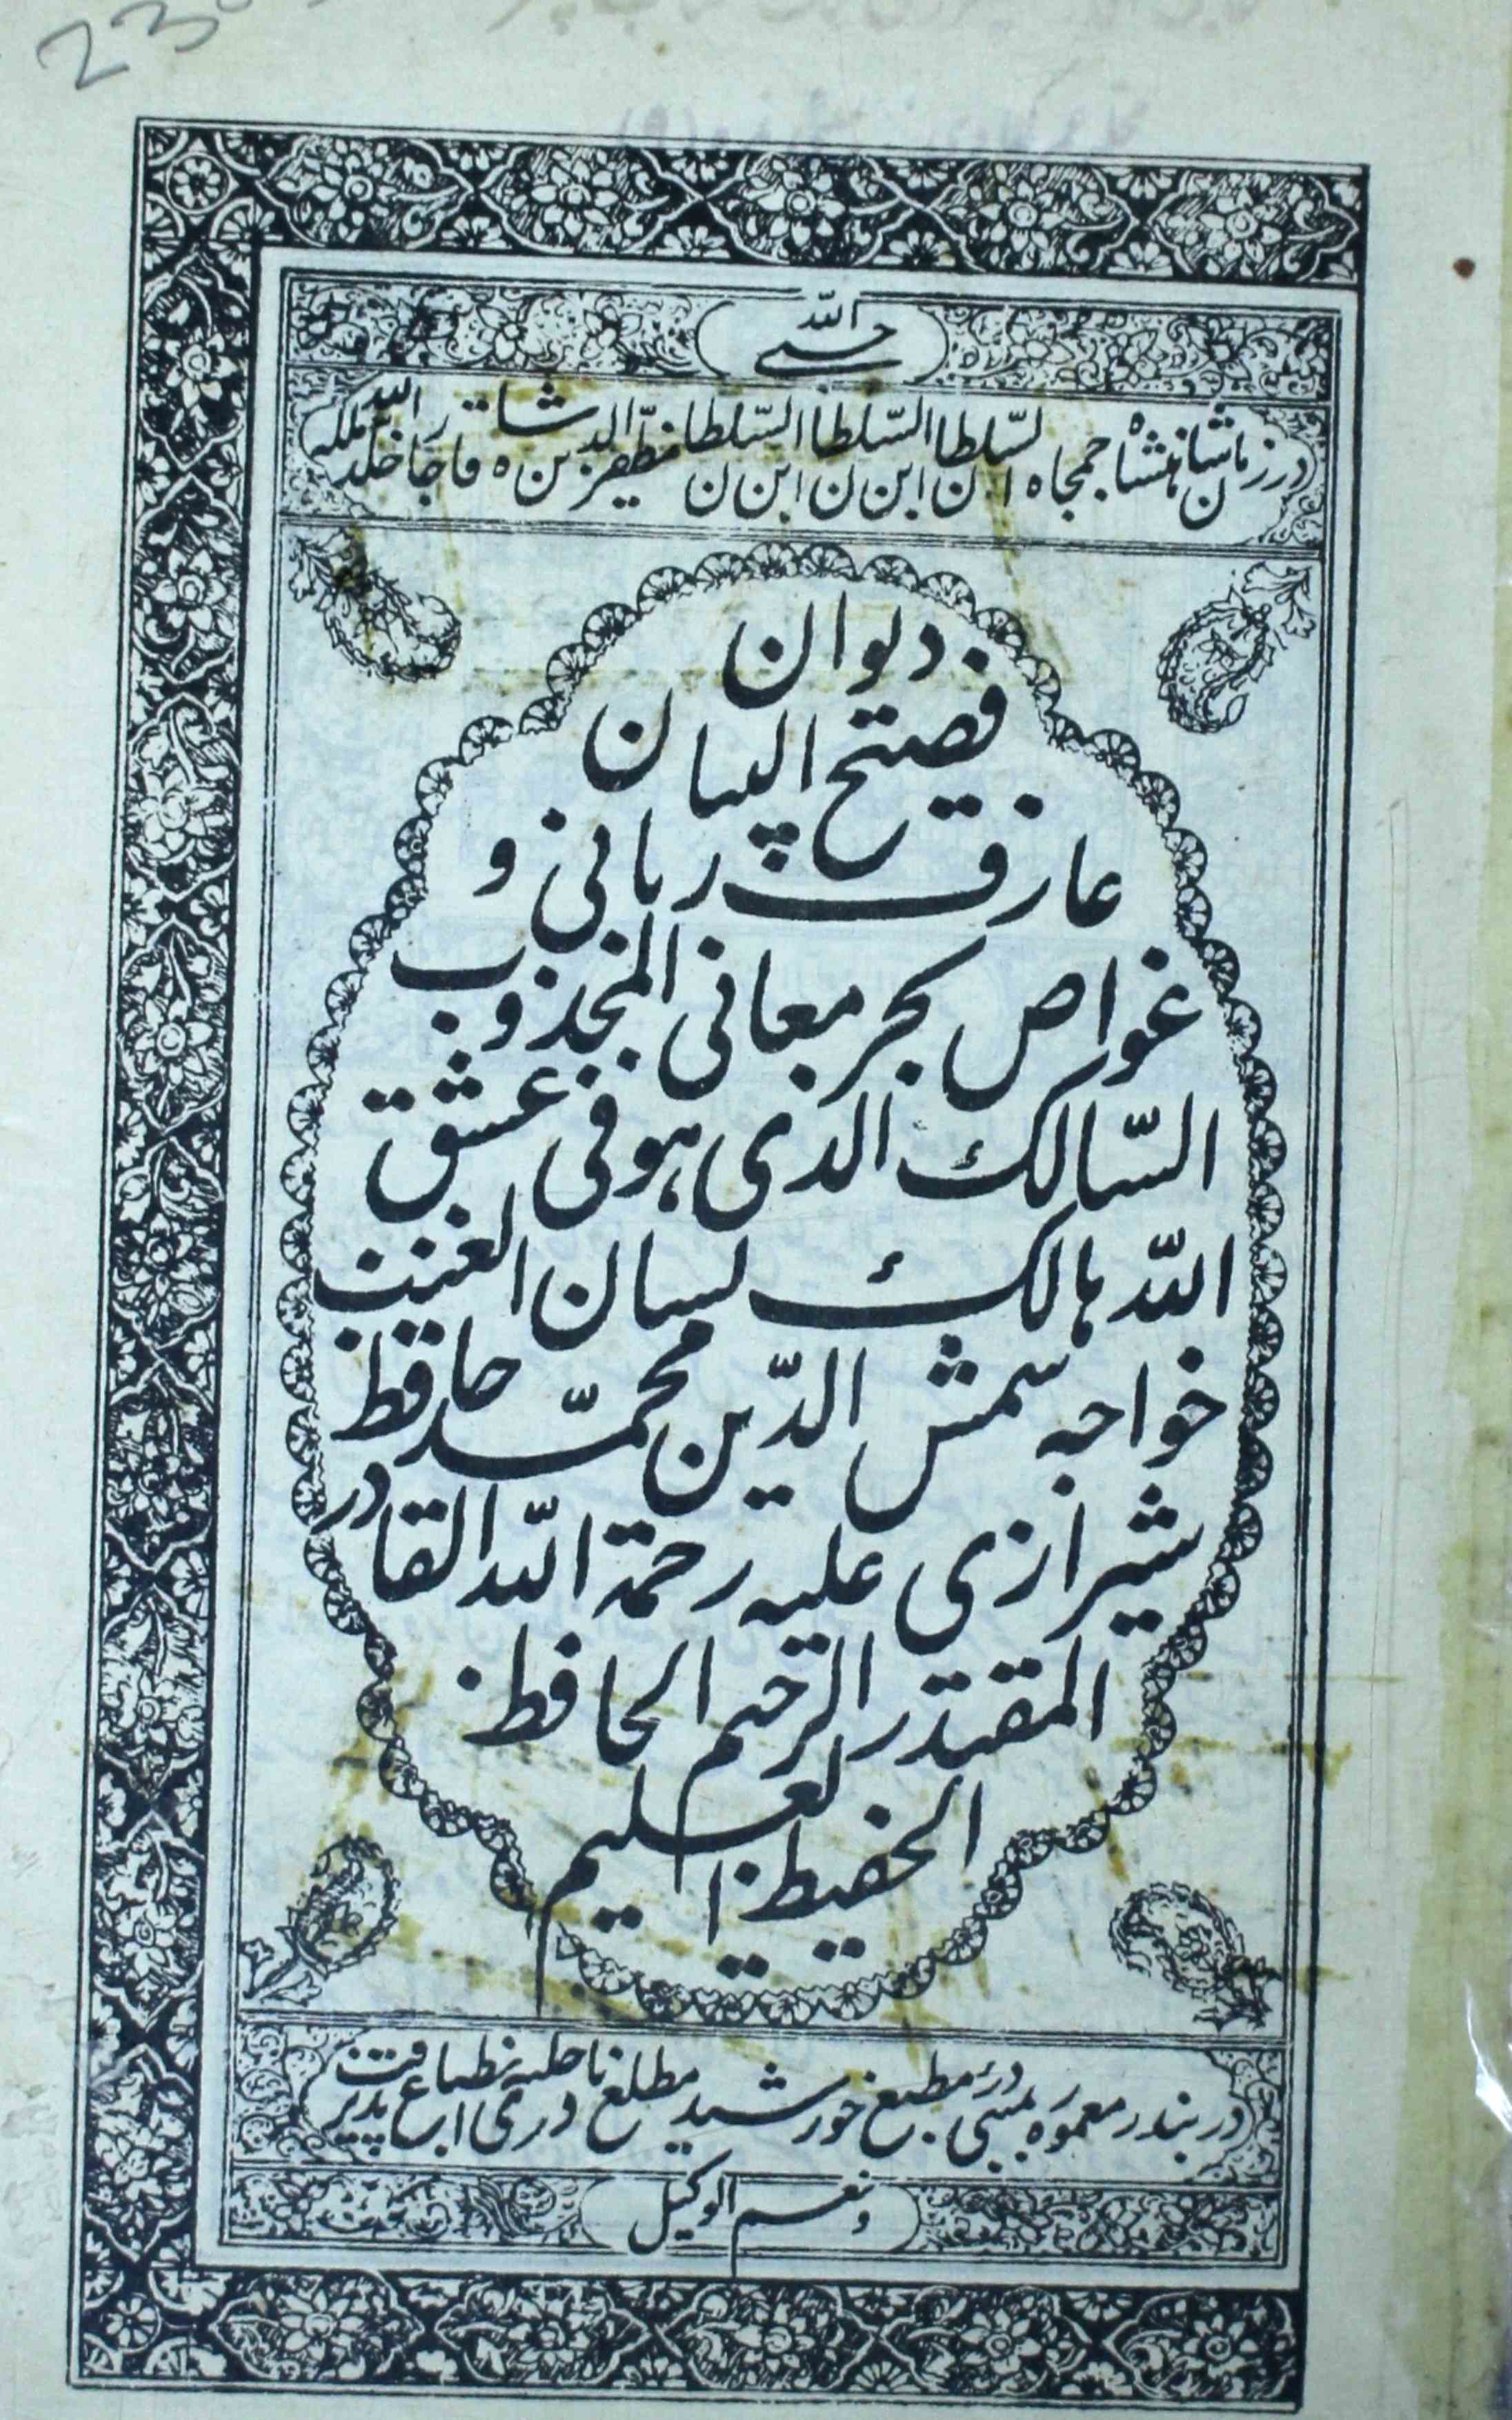 23
حسبی الله
در زمان شاهنشاه جمجاه السلطان ابن السلطان ابن السلطان ابن السلطان مظفرالدین شاه قاجار خلد الله ملکه
دیوان
فصیح البیان
عارف ربانی و
غواص بحر معانی المجذوب
السّالک الذی هو فی عشق
اللّه هالک لسان الغیب
خواجه شمس الدّین محمّد حافظ
شیرازی علیه رحمة اللّه القادر
المقتدر الرحیم الحافظ
الحفیظ العلیم
در بندر معموره بمبئی در مطبع خورشید مطلع نادری حلیه انطباع پذیرفت
و نعم الوکیل